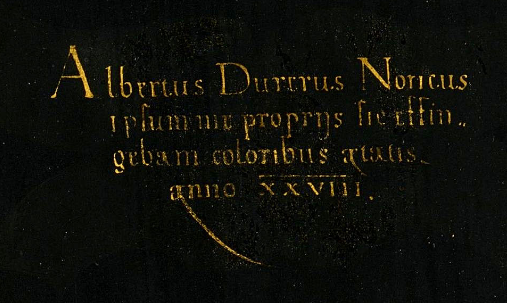 Albertus Durerus Noricus
ipsum me proprijs sic effin„
gebam coloribus ętatis„
anno XXVIII.